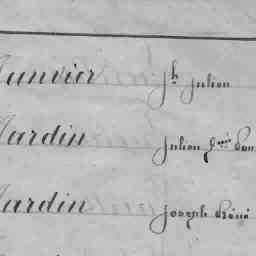 Janvier Jh Julien
Jardin Julien
Jardin Joseph Réné